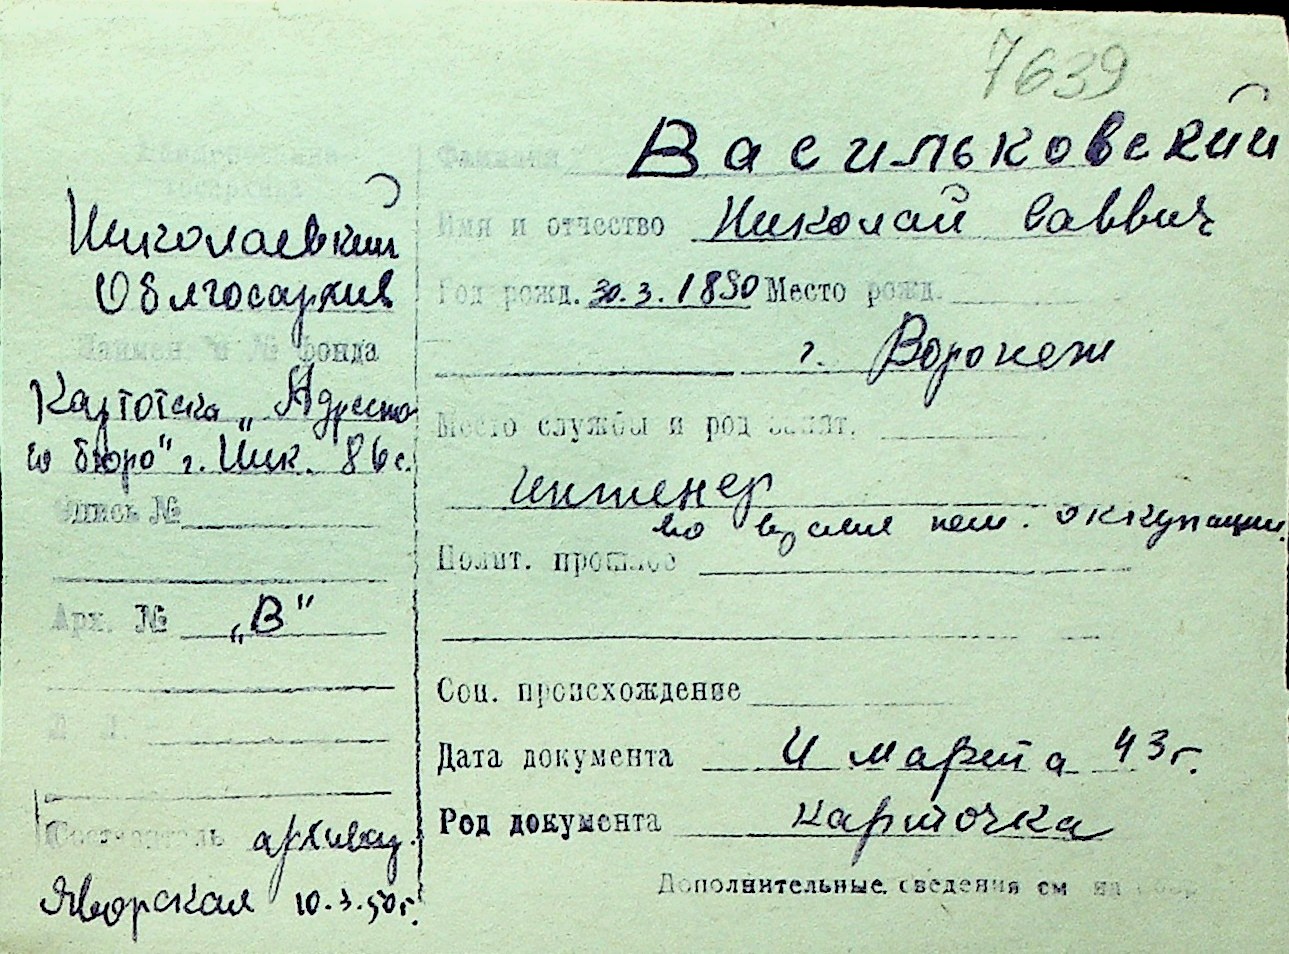 7639
Фамилия Васильковский
Николаевский
Облгосархив
Имя и отчество Николай Саввич
Год рожд. 30.3.1890 Место рожд.
г. Воронеж
Наимен и № фонда
Картотека „Адресно
го бюро" г. Ник. 86 с.
Место службы и род занят.
инженер
во время нем. оккупации.
Опись №
Полит. прошлое
Арх. № „В"
Соц. происхождение
Дата документа 4 марта 43г.
Род документа карточка
Составитель архивар.
Яворская 10.3.50г.
Дополнительные сведения см на обор